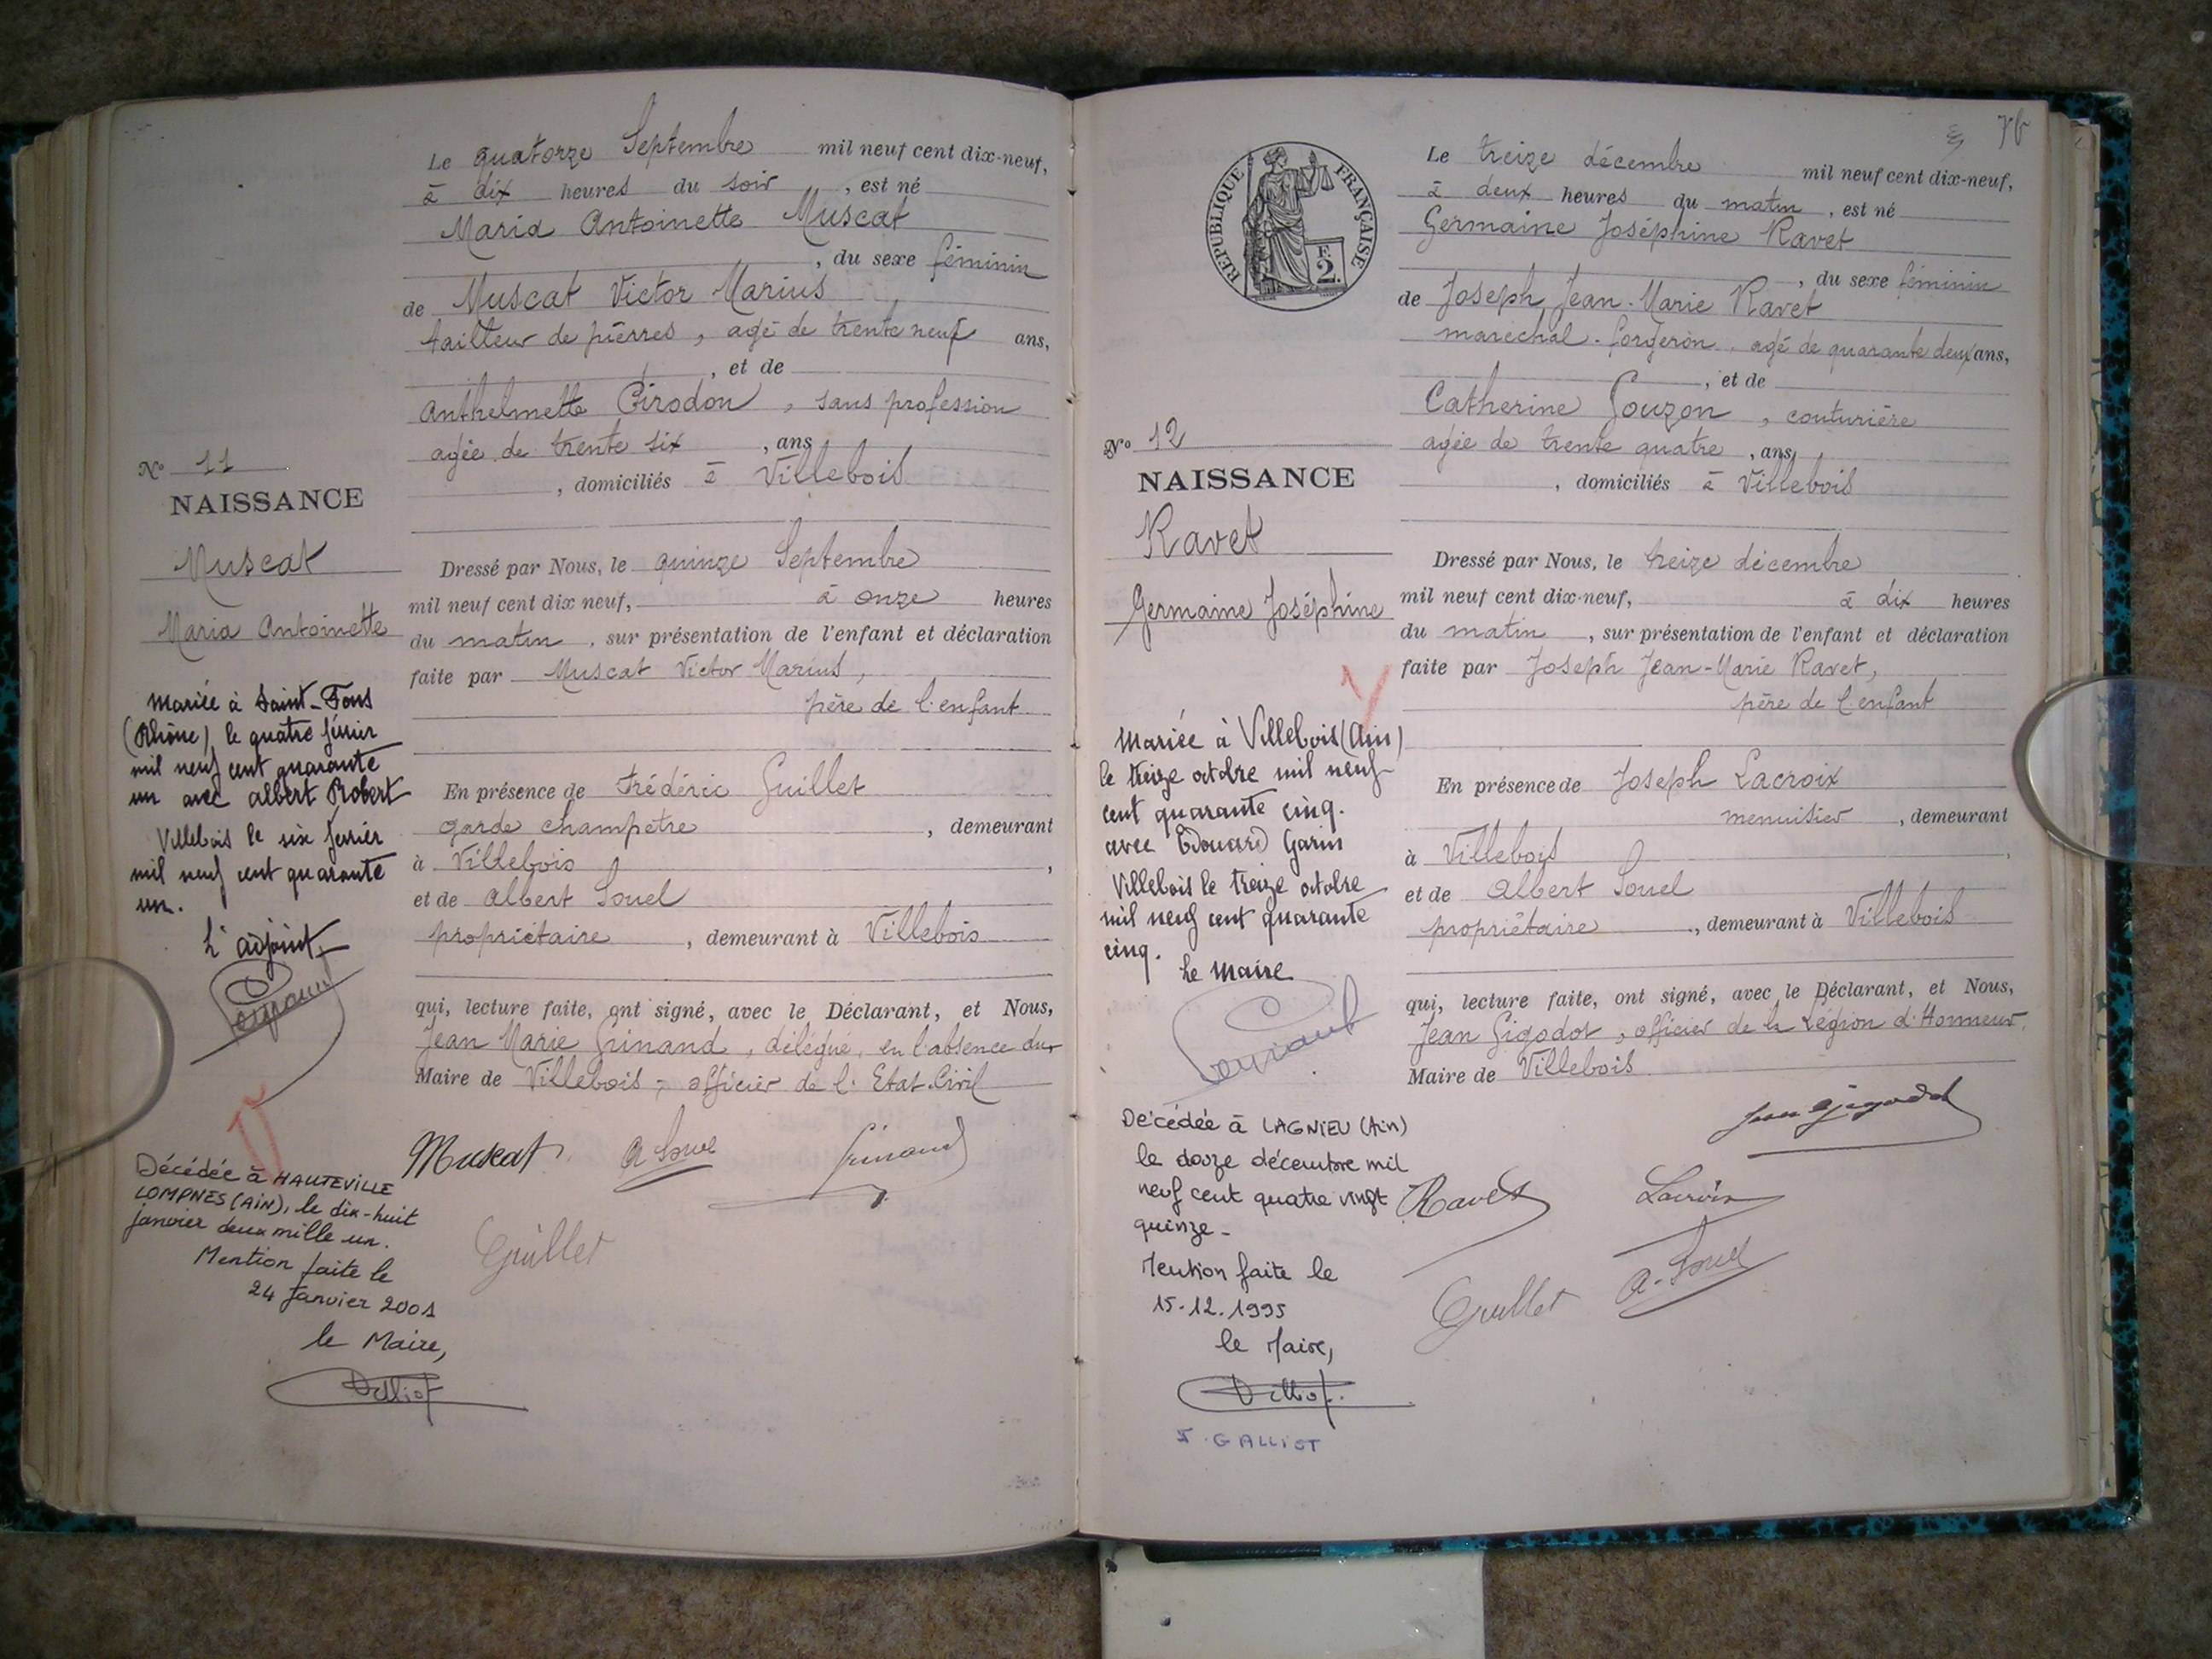 Le quatorze Septembre mil neuf cent dix-neuf,
à dix heures du soir, est né
Maria Antoinette Muscat
, du sexe féminin
de Muscat Victor Marius,
tailleur de pierres, agé de trente neuf ans,
, et de
Anthelmette Cirodon, sans profession
agée de trente six, ans
, domiciliés à Villebois
Nº 11
NAISSANCE
Muscat
Maria Antoinette
Dressé par Nous, le quinze Septembre
mil neuf cent dix neuf, à onze heures
du matin, sur présentation de l'enfant et déclaration
faite par Muscat Victor Marius,
père de l'enfant
En présence de Frédéric Guillet
garde champetre, demeurant
à Villebois,
et de Albert Souel
propriétaire, demeurant à Villebois
qui, lecture faite, ont signé, avec le Déclarant, et Nous,
Jean Marie Grinand, délégué, en l'absence du
Maire de Villebois, officier de l'Etat-Civil
Muscat A Souel Grinand
Guillet
Mariée à Saint-Fons
(Rhône) le quatre février
mil neuf cent quarante
un avec Albert Probert
Villebois le six février
mil neuf cent quarante
un.
L'adjoint,
Décédée à HAUTEVILLE
LOMPNES (AIN), le dix-huit
janvier deux mille un.
Mention faite le
24 Janvier 2001
le Maire,
RÉPUBLIQUE FRANÇAISE
F.
2.
76
Le treize décembre mil neuf cent dix-neuf,
à deux heures du matin, est né
Germaine Joséphine Ravet
, du sexe féminin
de Joseph Jean-Marie Ravet
maréchal-forgeron agé de quarante deux ans,
, et de
Catherine Gouzon, couturière
agée de trente quatre, ans,
, domiciliés à Villebois
Nº 12
NAISSANCE
Ravet
Germaine Joséphine
Dressé par Nous, le treize décembre
mil neuf cent dix-neuf, à dix heures
du matin, sur présentation de l'enfant et déclaration
faite par Joseph Jean-Marie Ravet,
père de l'enfant
En présence de Joseph Lacroix
menuisier, demeurant
à Villebois,
et de Albert Souel
propriétaire, demeurant à Villebois
qui, lecture faite, ont signé, avec le Déclarant, et Nous,
Jean Gigodot, officier de la Légion d'Honneur,
Maire de Villebois
Jean Gigodot
Ravet Lacroix
Guillet A. Souel
Mariée à Villebois (Ain)
le treize octobre mil neuf
cent quarante cinq.
avec Edouard Garin
Villebois le treize octobre
mil neuf cent quarante
cinq.
Le Maire
Décédée à LAGNIEU (Ain)
le douze décembre mil
neuf cent quatre vingt
quinze -
Mention faite le
15.12.1995
le Maire,
J. GALLIOT